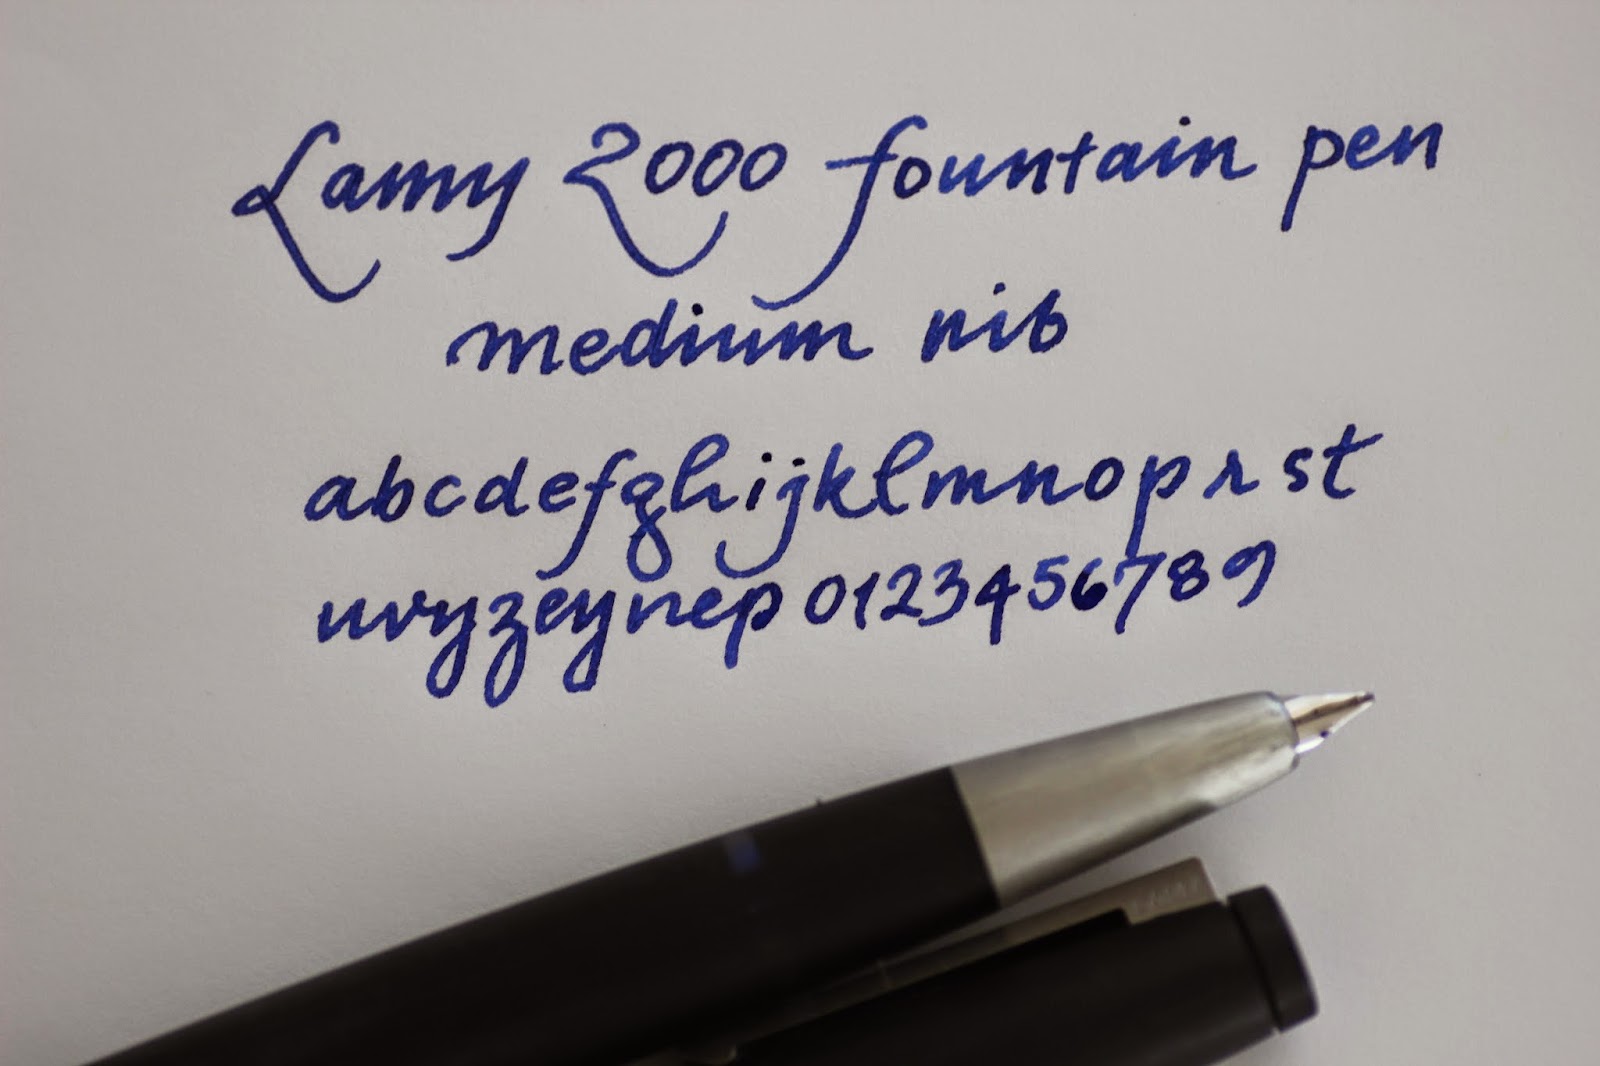 Lamy 2000 fountain pen
medium nib
abcdefghijklmnoprst
uvyzëynep 0123456789
LAMY